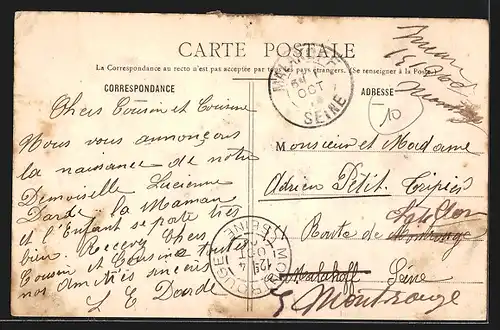 CARTE POSTALE
La Correspondance au recto n'est pas acceptée par tous les pays étrangers. (Se renseigner à la Poste.)
CORRESPONDANCE
Chers Cousin et Cousine
Nous vous annonçons
la naissance de notre
Demoiselle Lucienne
Darde la Maman
et l'Enfant se porte très
bien. Recevez Chers
Cousin et Cousine toutes
nos Amitiés sincères
L E Darde
ADRESSE
10
Monsieur et Madame
Adrien Petit. Tripier
Route de Montrouge
Chatillon
Malakoff Seine
Montrouge
OCT
SEINE
MONTROUGE
SEINE
OCT